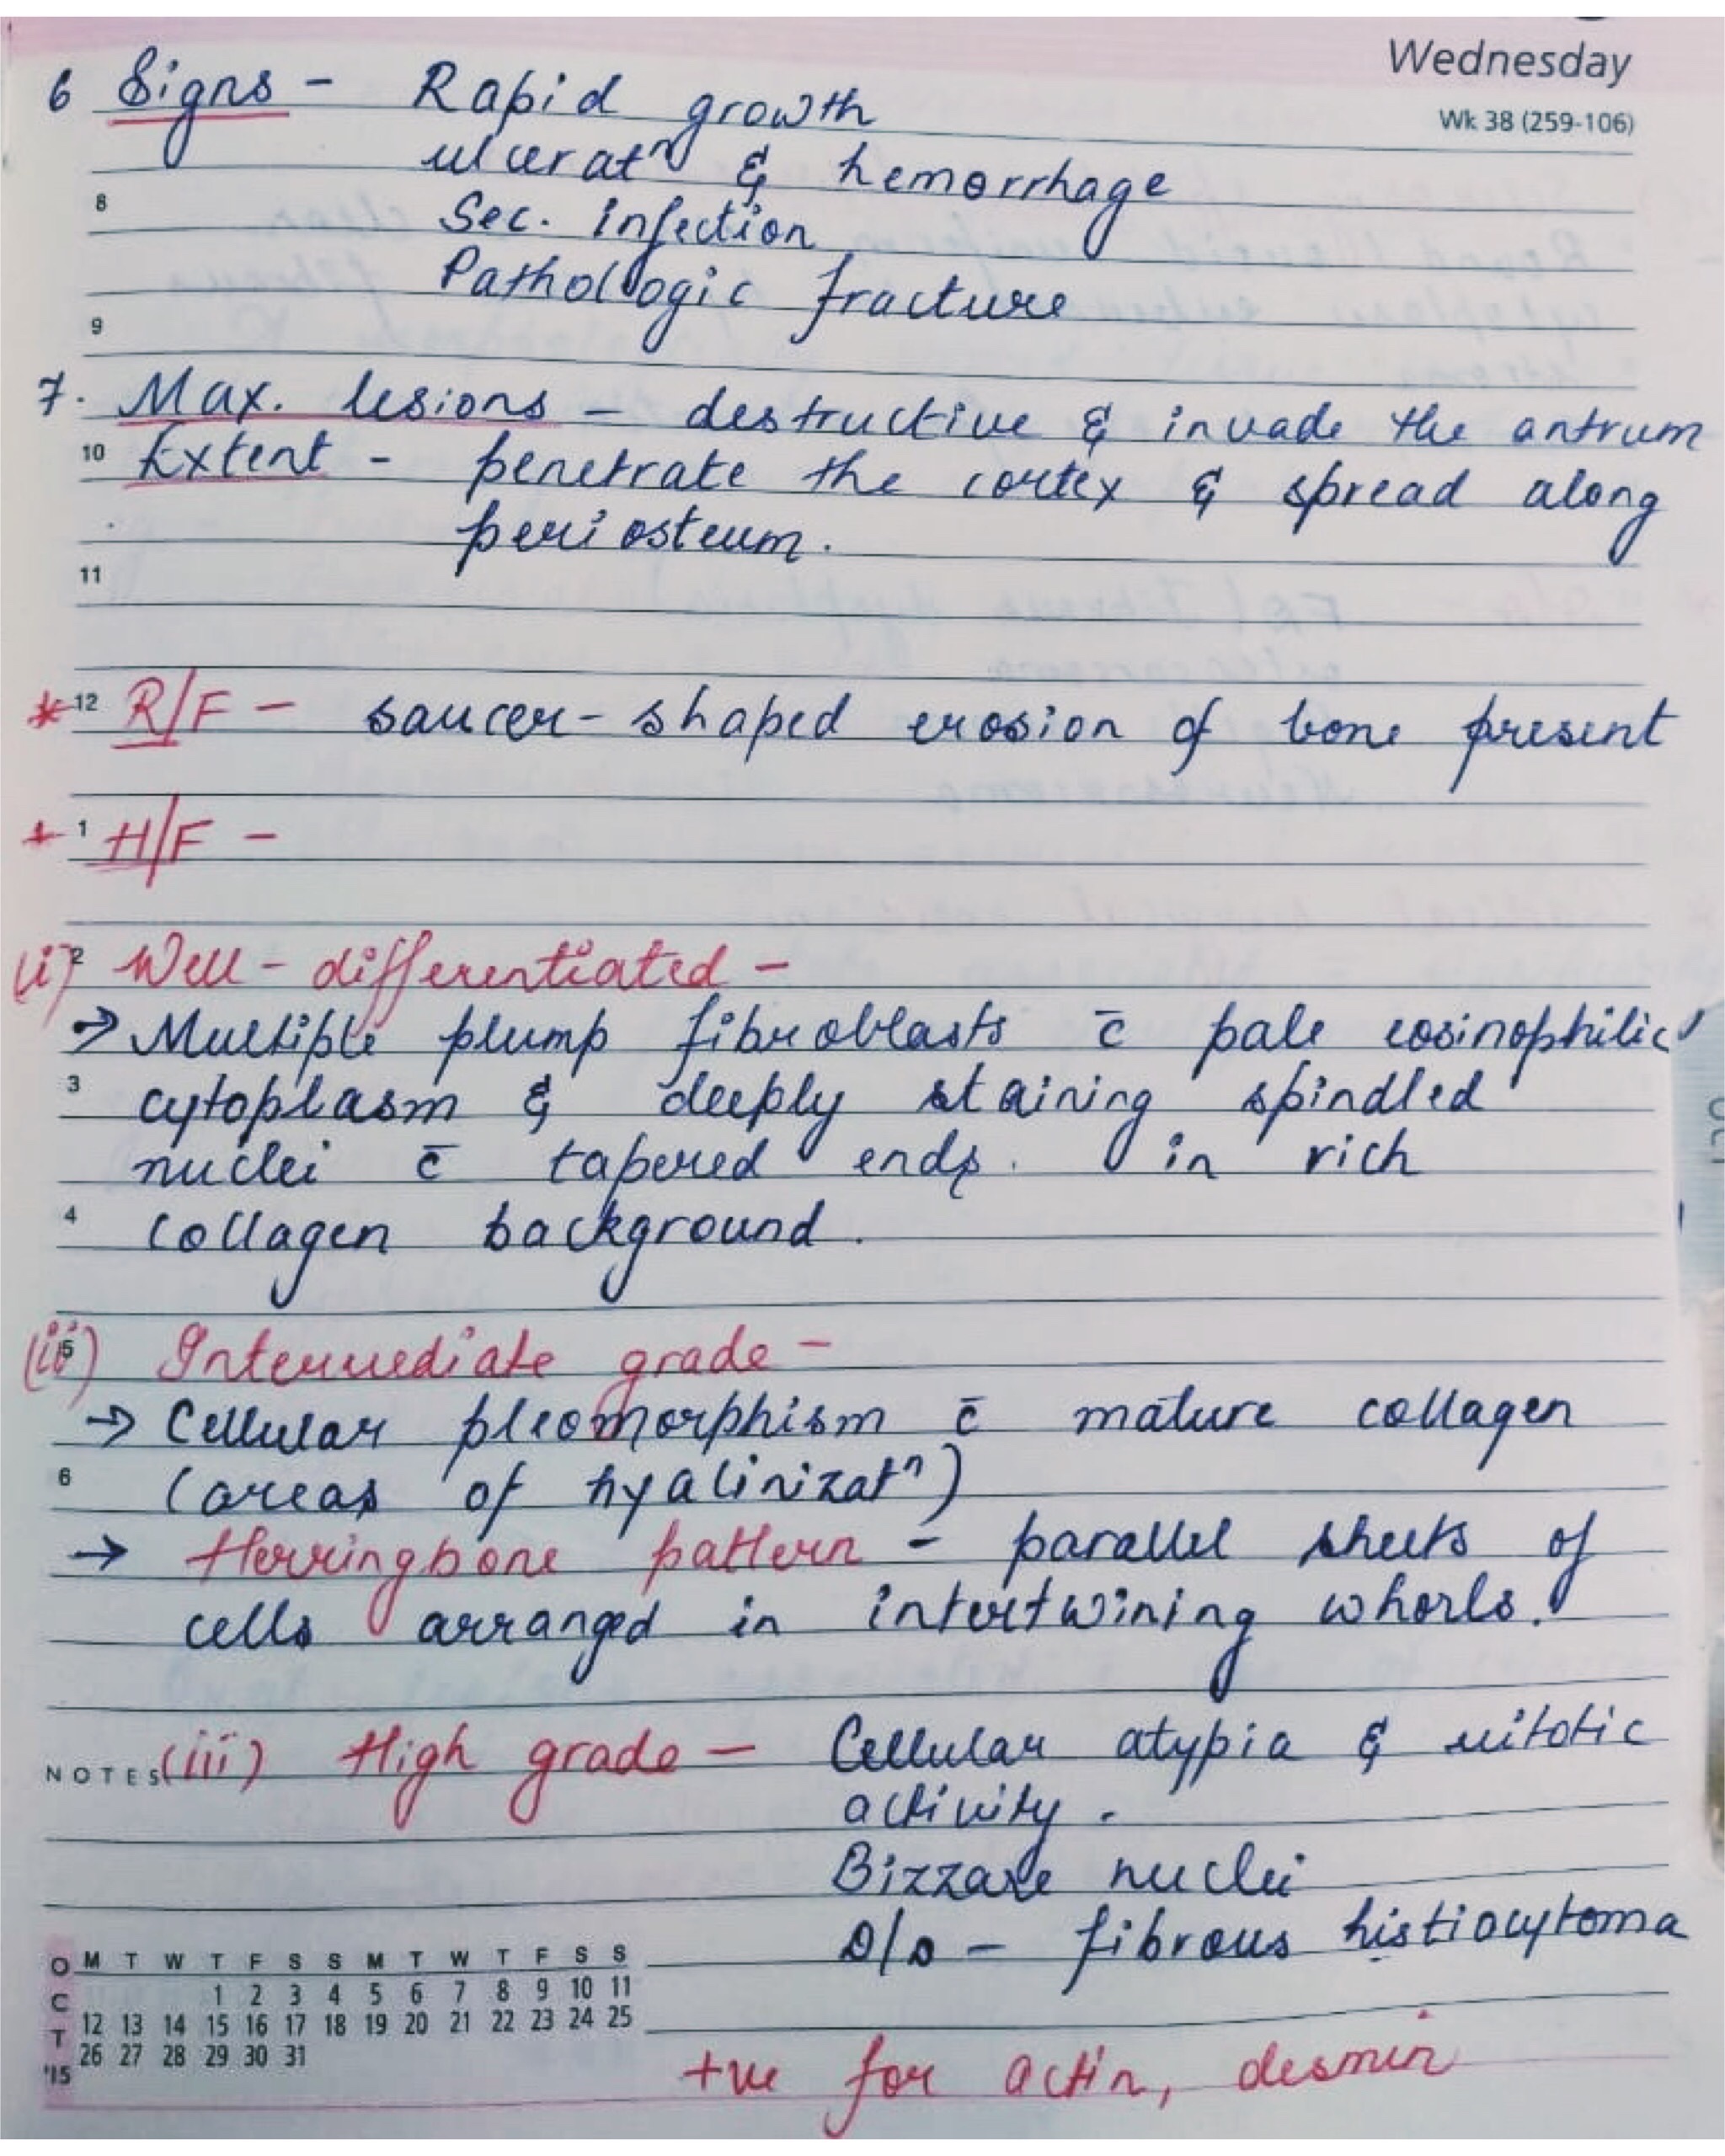 Wednesday
Wk 38 (259-106)
6 Signs - Rapid growth
ulceratⁿ & hemorrhage
8 Sec. infection
Pathologic fracture
9
7. Max. lesions - destructive & invade the antrum
10 Extent - penetrate the cortex & spread along
periosteum.
11
* 12 R/F - saucer-shaped erosion of bone present
* 1 H/F -
(i) 2 Well-differentiated -
→ Multiple plump fibroblasts c̄ pale eosinophilic
3 cytoplasm & deeply staining spindled
nuclei c̄ tapered ends. in rich
4 collagen background.
(ii) 5 Intermediate grade -
→ Cellular pleomorphism c̄ mature collagen
6 (areas of hyalinizatⁿ)
→ Herringbone pattern - parallel sheets of
cells arranged in intertwining whorls.
NOTES (iii) High grade - Cellular atypia & mitotic
activity.
Bizzare nuclei
D/D - fibrous histiocytoma
OCT '15
M T W T F S S M T W T F S S
1 2 3 4 5 6 7 8 9 10 11
12 13 14 15 16 17 18 19 20 21 22 23 24 25
26 27 28 29 30 31
+ve for actin, desmin